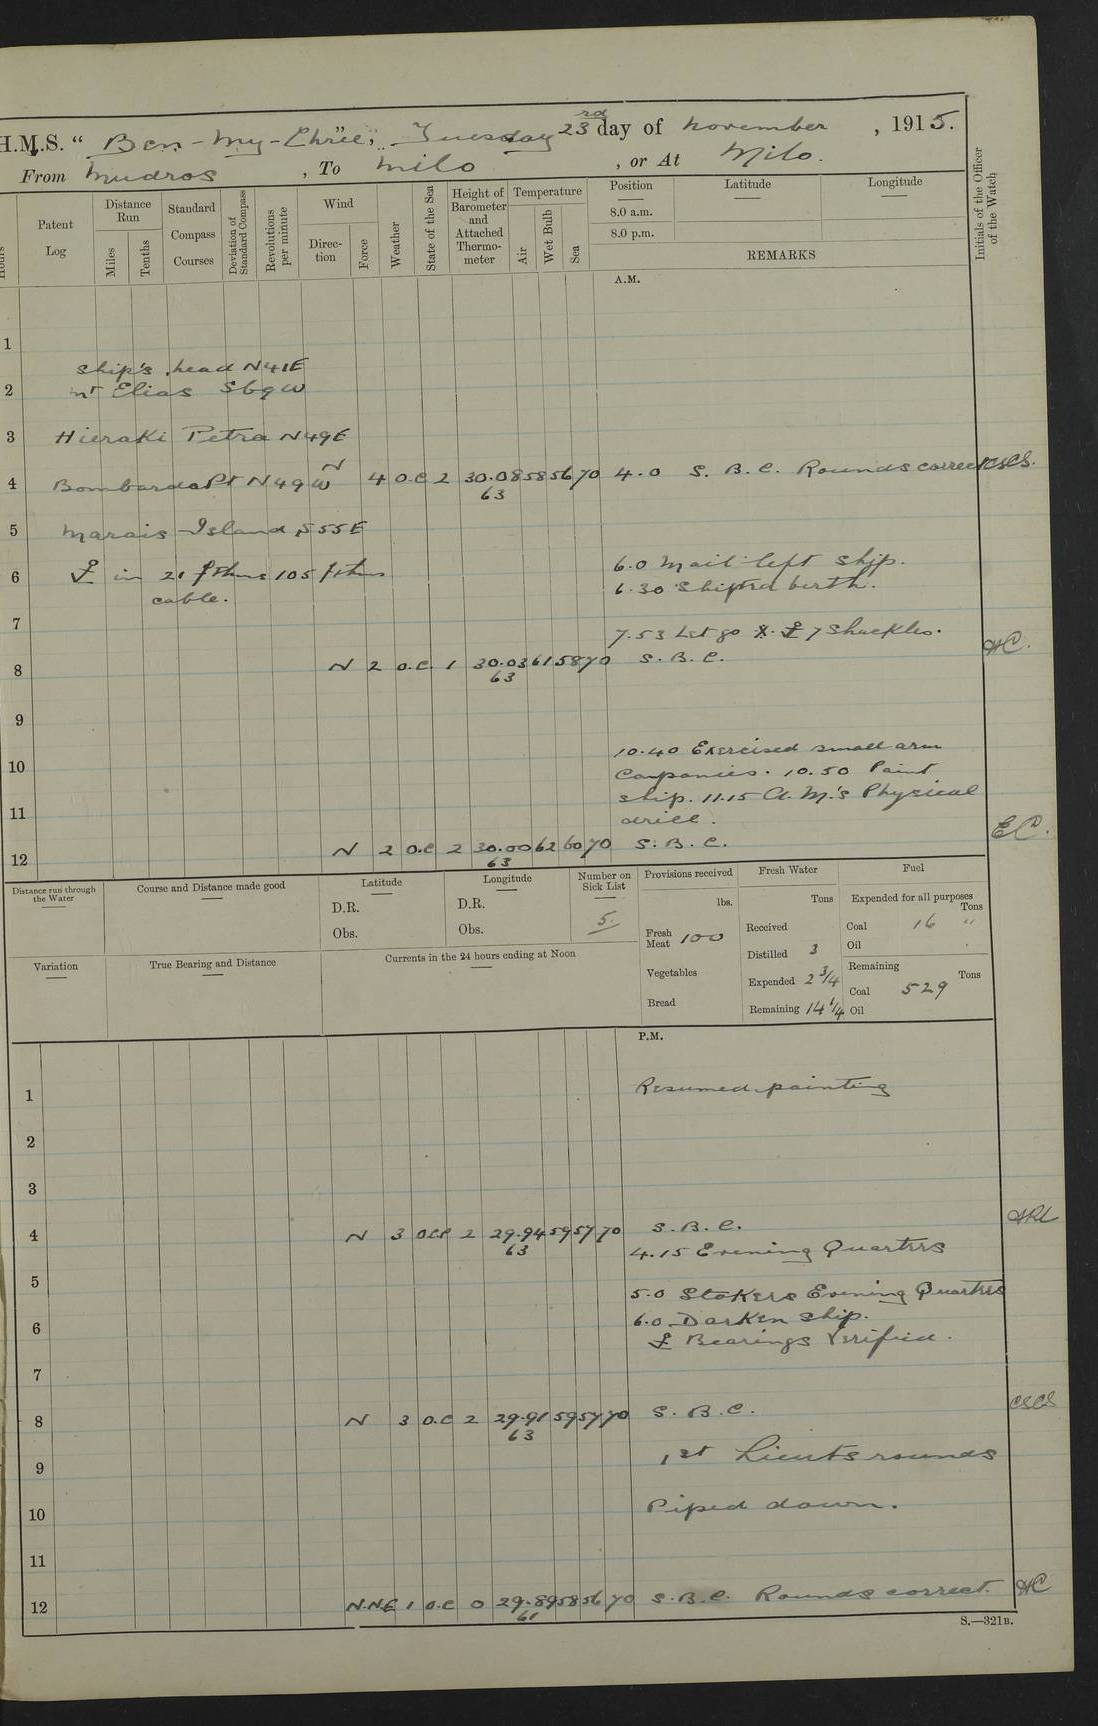 H.M.S. “ Ben-my-Chree”, Tuesday 23rd day of november , 1915.
From Mudros , To Milo , or At Milo.
Hours
Patent Log
Distance Run
Miles
Tenths
Standard Compass Courses
Deviation of Standard Compass
Revolutions per minute
Wind
Direction
Force
Weather
State of the Sea
Height of Barometer and Attached Thermometer
Temperature
Air
Wet Bulb
Sea
Position
8.0 a.m.
8.0 p.m.
Latitude
Longitude
REMARKS
Initials of the Officer of the Watch
A.M.
1
ship's head N41E
2 mt Elias SbyW
3 Hieraki Petra N49E
4 Bombarda Pt N49W N 4 O.C 2 30.08 58 56 70 4.0 S. B. C. Rounds correct CSCS.
63
5 Marais Island S55E
6 in 21 fthms 105 fthms
cable.
6.0 Mail left ship.
6.30 Shifted berth.
7
7.53 Let go 7 Shackles.
8 N 2 O.C. 1 30.03 61 58 70 S. B. C. HC.
63
9
10.40 Exercised small arm
10 Companies. 10.50 Paint
ship. 11.15 A.M.'s Physical
11 drill.
12 N 2 O.C 2 30.00 62 60 70 S. B. C. EC.
63
Distance run through the Water
Course and Distance made good
Latitude
D.R.
Obs.
Longitude
D.R.
Obs.
Number on Sick List
5.
Provisions received
lbs.
Fresh Meat 100
Vegetables
Bread
Fresh Water
Tons
Received
Distilled 3
Expended 2 3/4
Remaining 14 1/4
Fuel
Expended for all purposes
Tons
Coal 16 "
Oil
Remaining
Tons
Coal 529
Oil
Variation
True Bearing and Distance
Currents in the 24 hours ending at Noon
P.M.
1 Resumed painting
2
3
4 N 3 OCP 2 29.94 59 57 70 S. B. C.
63
4.15 Evening Quarters
5
5.0 Stokers Evening Quarters
6 6.0 Darken ship.
Bearings Verified.
7
8 N 3 O.C 2 29.91 59 57 70 S. B. C. CSCS
63
9 1st Lieuts rounds
10 Piped down.
11
12 N.N.E 1 O.C 0 29.89 58 56 70 S. B. C. Rounds correct. HC
61
S.—321B.